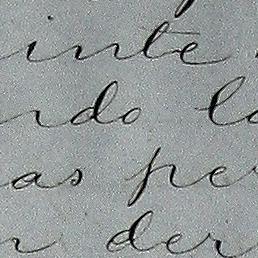 inte
ndo lo
as per
r der